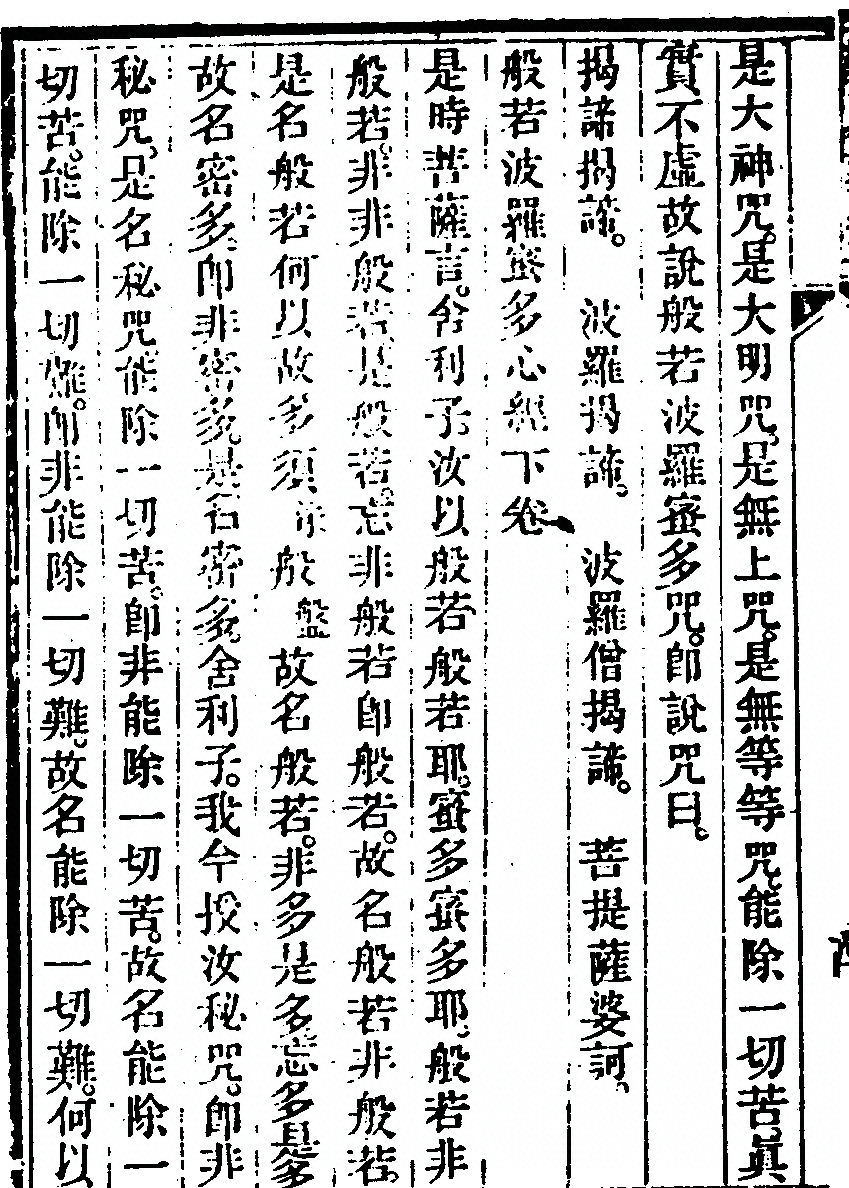 是大神咒。是大明咒。是無上咒。是無等等咒。能除一切苦。眞
實不虛故說般若波羅蜜多咒。卽說咒曰。
揭諦揭諦。　波羅揭諦。　波羅僧揭諦。　菩提薩婆訶。
般若波羅蜜多心經下卷
是時菩薩言。舍利子。汝以般若般若耶。蜜多蜜多耶。般若非
般若。非非般若。是般若。忘非般若卽般若。故名般若非般若。
是名般若何以故多須　般　盤　故名般若。非多是多忘多是多
故名密多。卽非密多。是名密多。舍利子。我今授汝秘咒。卽非
秘咒。是名秘咒能除一切苦。卽非能除一切苦。故名能除一
切苦。能除一切難。卽非能除一切難。故名能除一切難。何以